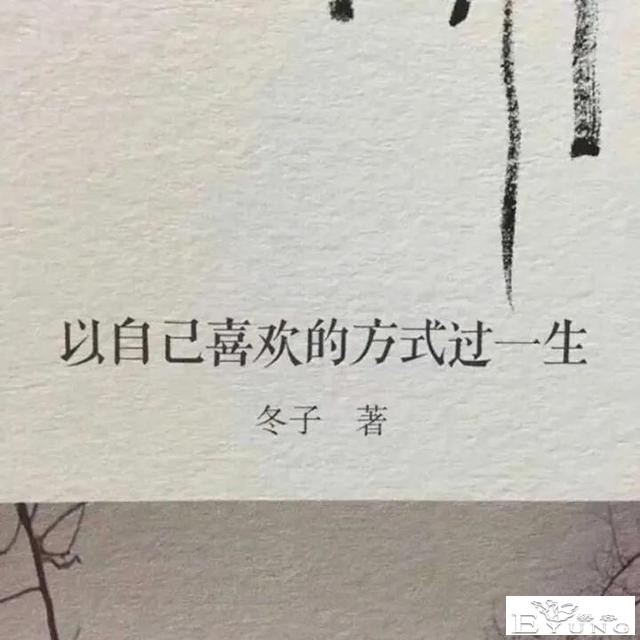 以自己喜欢的方式过一生
冬子 著
EYUNG